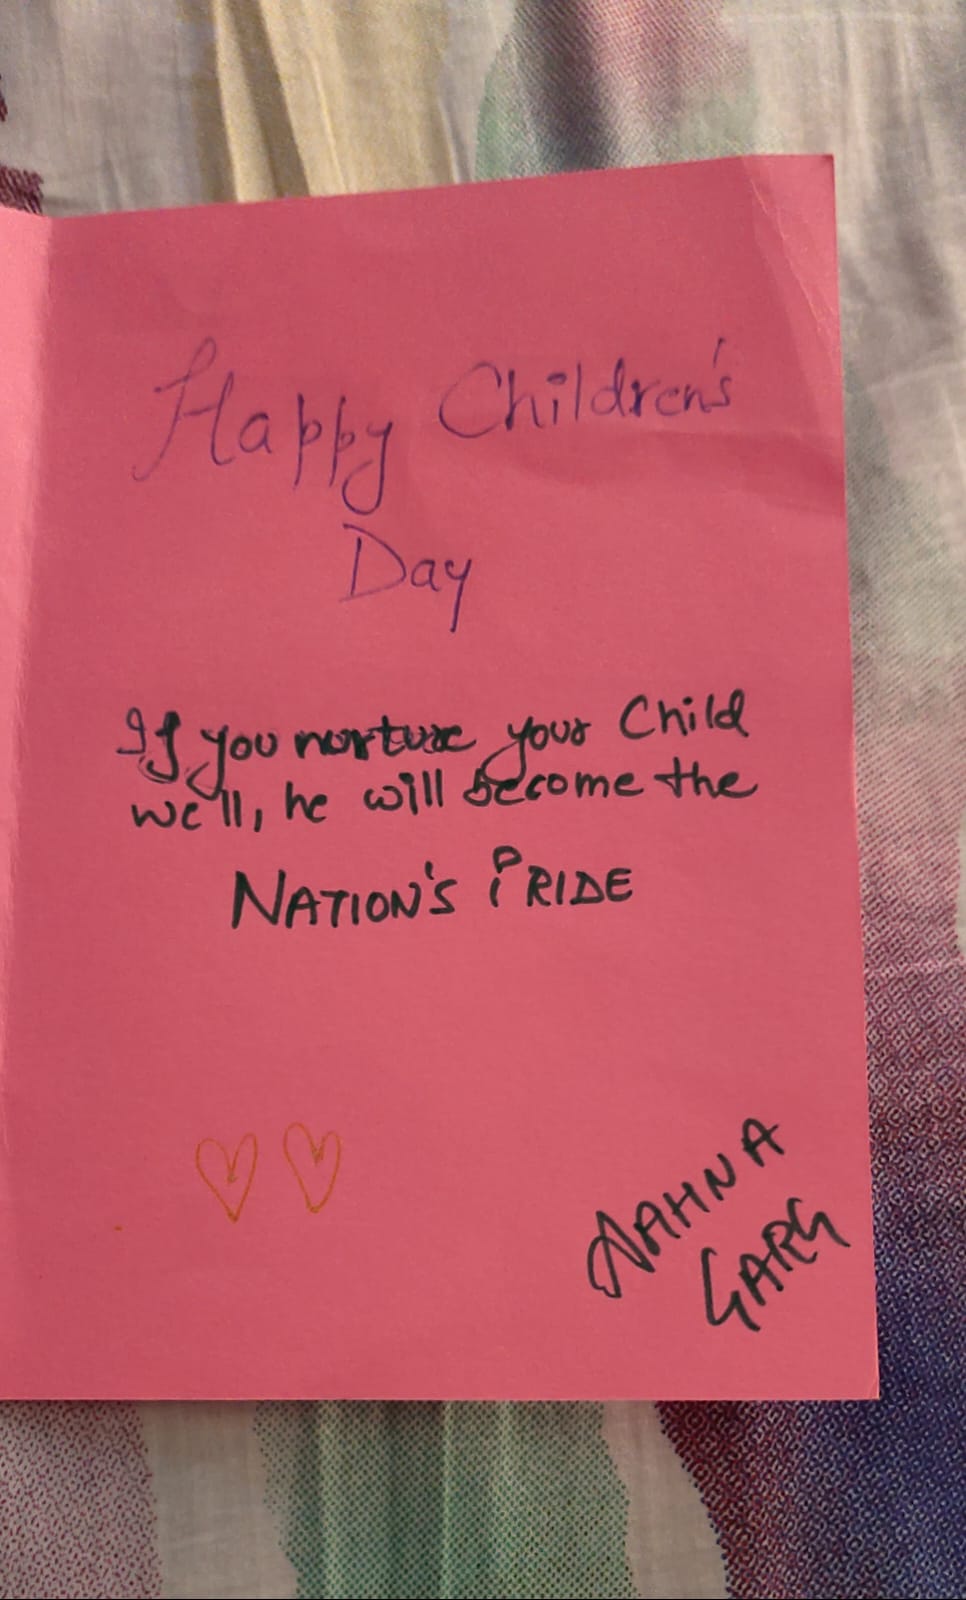 Happy Children's
Day
If you nurture your Child
well, he will become the
NATION'S PRIDE
AAHNA
GARG